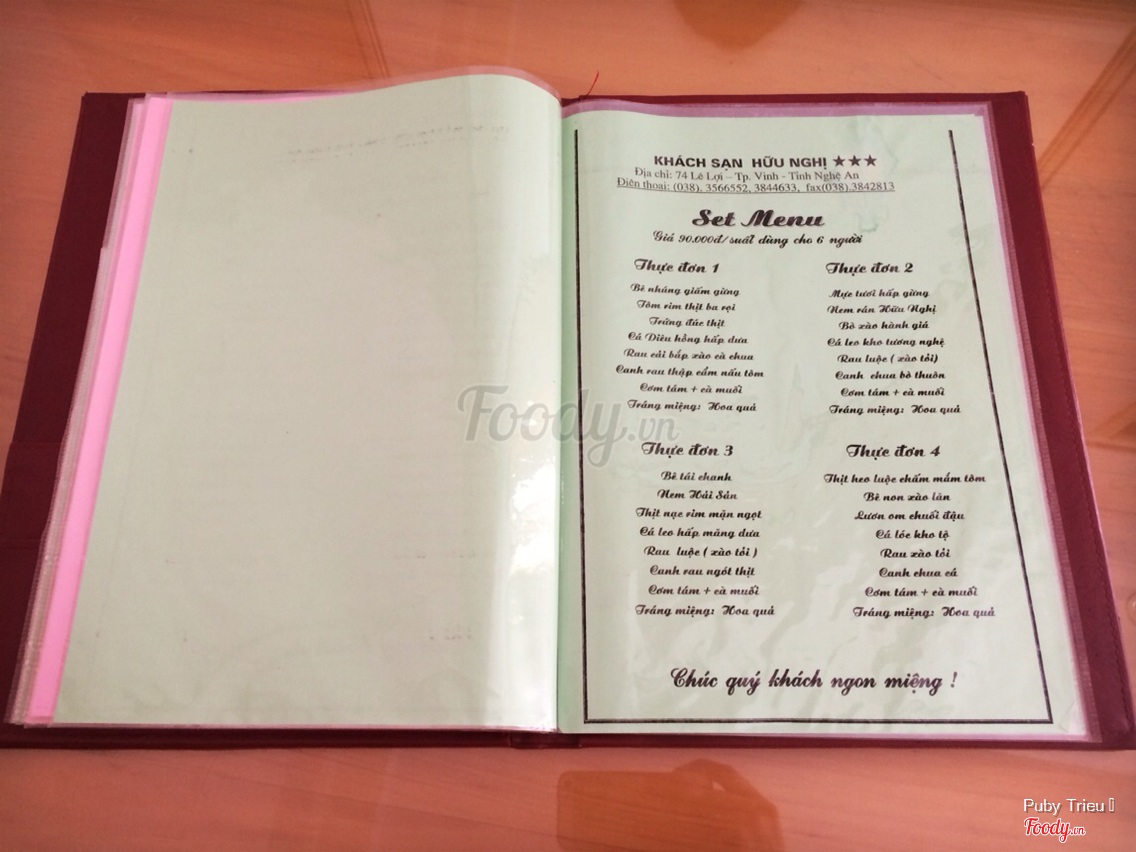 KHÁCH SẠN HỮU NGHỊ ★★★
Địa chỉ: 74 Lê Lợi – Tp. Vinh - Tỉnh Nghệ An
Điên thoai: (038). 3566552, 3844633, fax(038).3842813
Set Menu
Giá 90.000đ/suất dùng cho 6 người
Thực đơn 1
Bê nhúng giấm gừng
Tôm rim thịt ba rọi
Trứng đúc thịt
Cá Diêu hồng hấp dưa
Rau cải bắp xào cà chua
Canh rau thập cẩm nấu tôm
Cơm tám + cà muối
Tráng miệng: Hoa quả
Thực đơn 2
Mực tươi hấp gừng
Nem rán Hữu Nghị
Bò xào hành giá
Cá leo kho tương nghệ
Rau luộc ( xào tỏi)
Canh chua bò thuôn
Cơm tám + cà muối
Tráng miệng: Hoa quả
Thực đơn 3
Bê tái chanh
Nem Hải Sản
Thịt nạc rim mặn ngọt
Cá leo hấp măng dưa
Rau luộc ( xào tỏi )
Canh rau ngót thịt
Cơm tám + cà muối
Tráng miệng: Hoa quả
Thực đơn 4
Thịt heo luộc chấm mắm tôm
Bê non xào lăn
Lươn om chuối đậu
Cá lóc kho tộ
Rau xào tỏi
Canh chua cá
Cơm tám + cà muối
Tráng miệng: Hoa quả
Chúc quý khách ngon miệng !
Foody.vn
Puby Trieu
Foody.vn